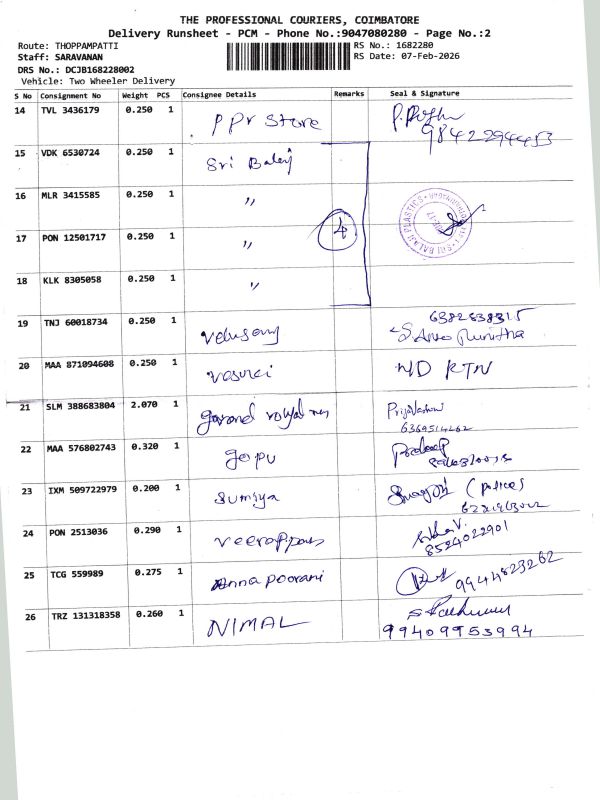 THE PROFESSIONAL COURIERS, COIMBATORE
Delivery Runsheet - PCM - Phone No.:9047080280 - Page No.:2
Route: THOPPAMPATTI RS No.: 1682280
Staff: SARAVANAN RS Date: 07-Feb-2026
DRS No.: DCJB168228002
Vehicle: Two Wheeler Delivery
S No Consignment No Weight PCS Consignee Details Remarks Seal & Signature
14 TVL 3436179 0.250 1 PPr Store
9842294453
15 VDK 6530724 0.250 1 Sri Balaji
16 MLR 3415585 0.250 1 "
17 PON 12501717 0.250 1 " 4
18 KLK 8305058 0.250 1 "
19 TNJ 60018734 0.250 1 Velusamy 6382838315
20 MAA 871094608 0.250 1 N/D RTN
21 SLM 388683804 2.070 1
6369514262
22 MAA 576802743 0.320 1 Gopu Pradeep
23 IXM 509722979 0.200 1 Sumiya (police)
24 PON 2513036 0.290 1
8524022901
25 TCG 559989 0.275 1 Anna poorani 9944823262
26 TRZ 131318358 0.260 1 NIMAL
99409953994